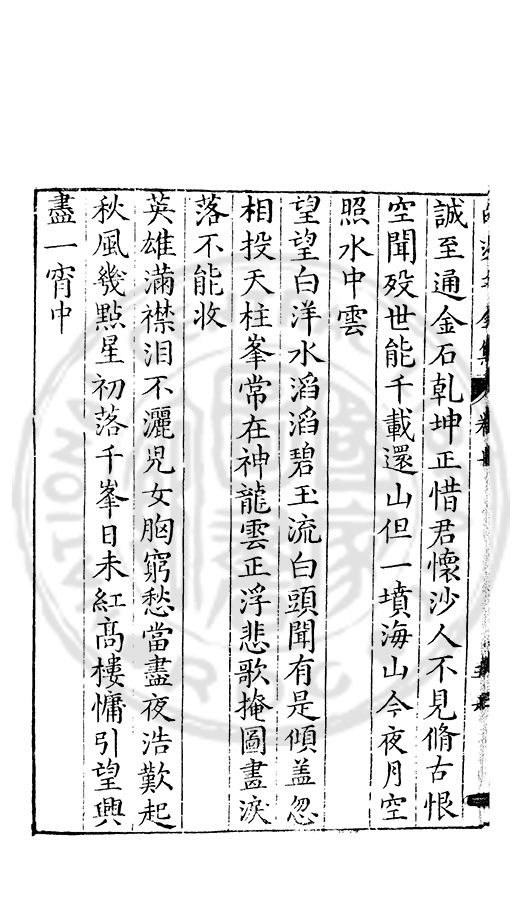 誠至通金石乾坤正惜君懷沙人不見脩古恨
空聞歿世能千載還山但一墳海山今夜月空
照水中雲
望望白洋水滔滔碧玉流白頭聞有是傾盖忽
相投天柱峯常在神龍雲正浮悲歌掩圖畫淚
落不能收
英雄滿襟泪不灑児女胸窮愁當盡夜浩歎起
秋風幾點星初落千峯日未紅高樓慵引望興
盡一宵中